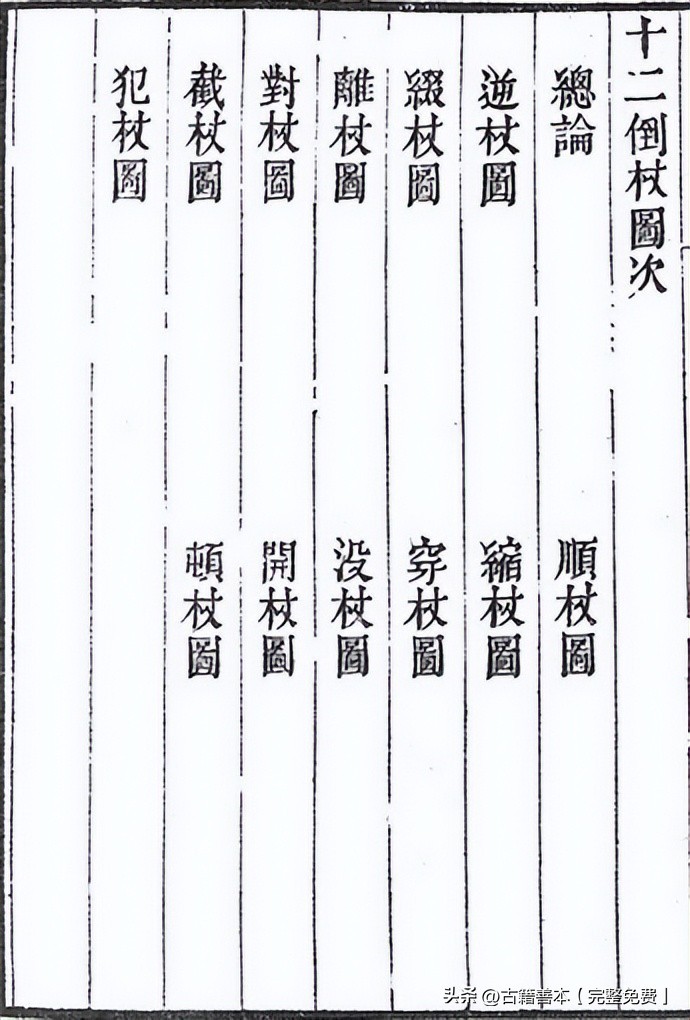 十二倒杖圖次
總論
順杖圖
逆杖圖
縮杖圖
綴杖圖
穿杖圖
離杖圖
没杖圖
對杖圖
開杖圖
截杖圖
頓杖圖
犯杖圖
头条 @古籍善本【完整免费】